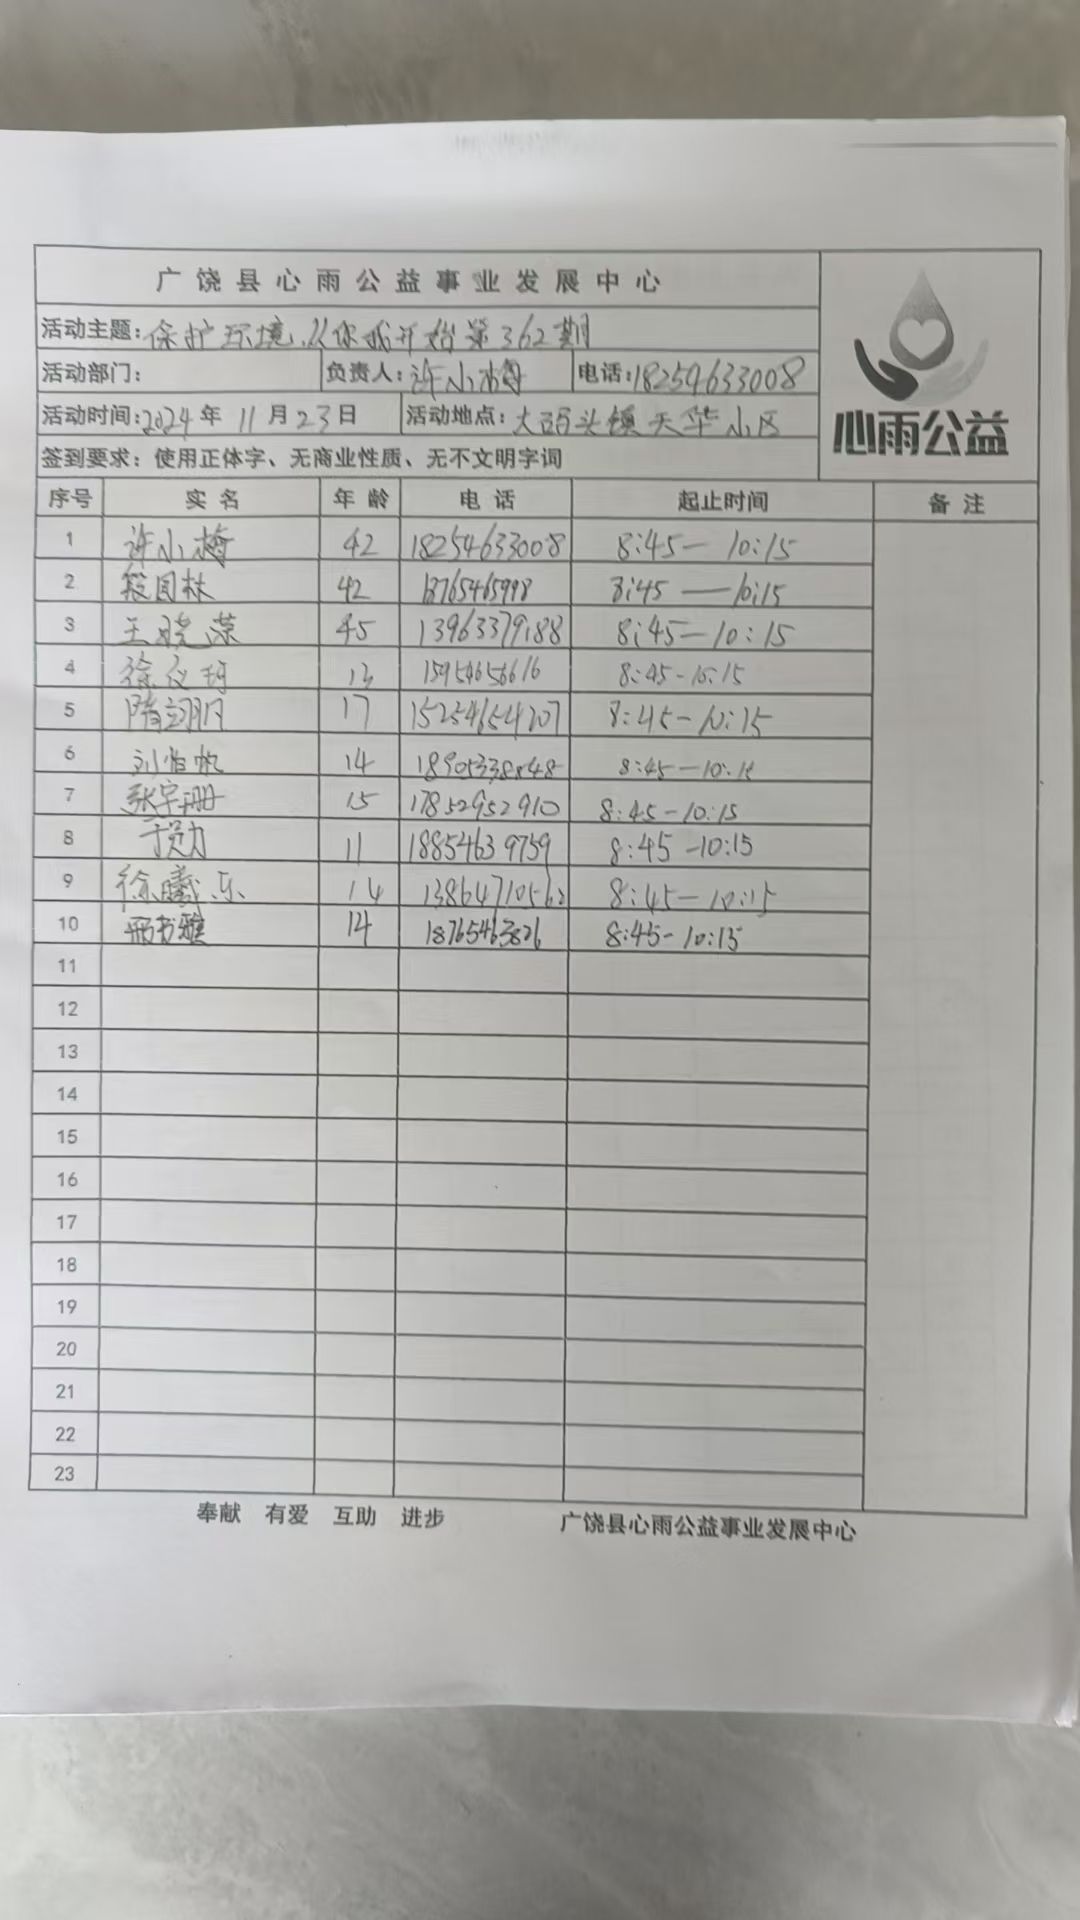 广饶县心雨公益事业发展中心
活动主题:保护环境,从你我开始第362期
活动部门: 负责人:许小梅 电话:18254633008
活动时间:2024年11月23日 活动地点:大码头镇天华小区
签到要求:使用正体字、无商业性质、无不文明字词
心雨公益
序号 实名 年龄 电话 起止时间 备注
1 许小梅 42 18254633008 8:45—10:15
2 42 18765465998 8:45—10:15
3 王晓荣 45 13963379188 8:45—10:15
4 徐仪珂 13 15954656616 8:45-10:15
5 17 15254654207 8:45-10:15
6 刘怡帆 14 8:45—10:15
7 张宇珊 15 17852952910 8:45-10:15
8 11 18854639759 8:45-10:15
9 徐曦乐 14 13864710562 8:45—10:15
10 邢书雅 14 18765463826 8:45-10:15
11
12
13
14
15
16
17
18
19
20
21
22
23
奉献 有爱 互助 进步 广饶县心雨公益事业发展中心